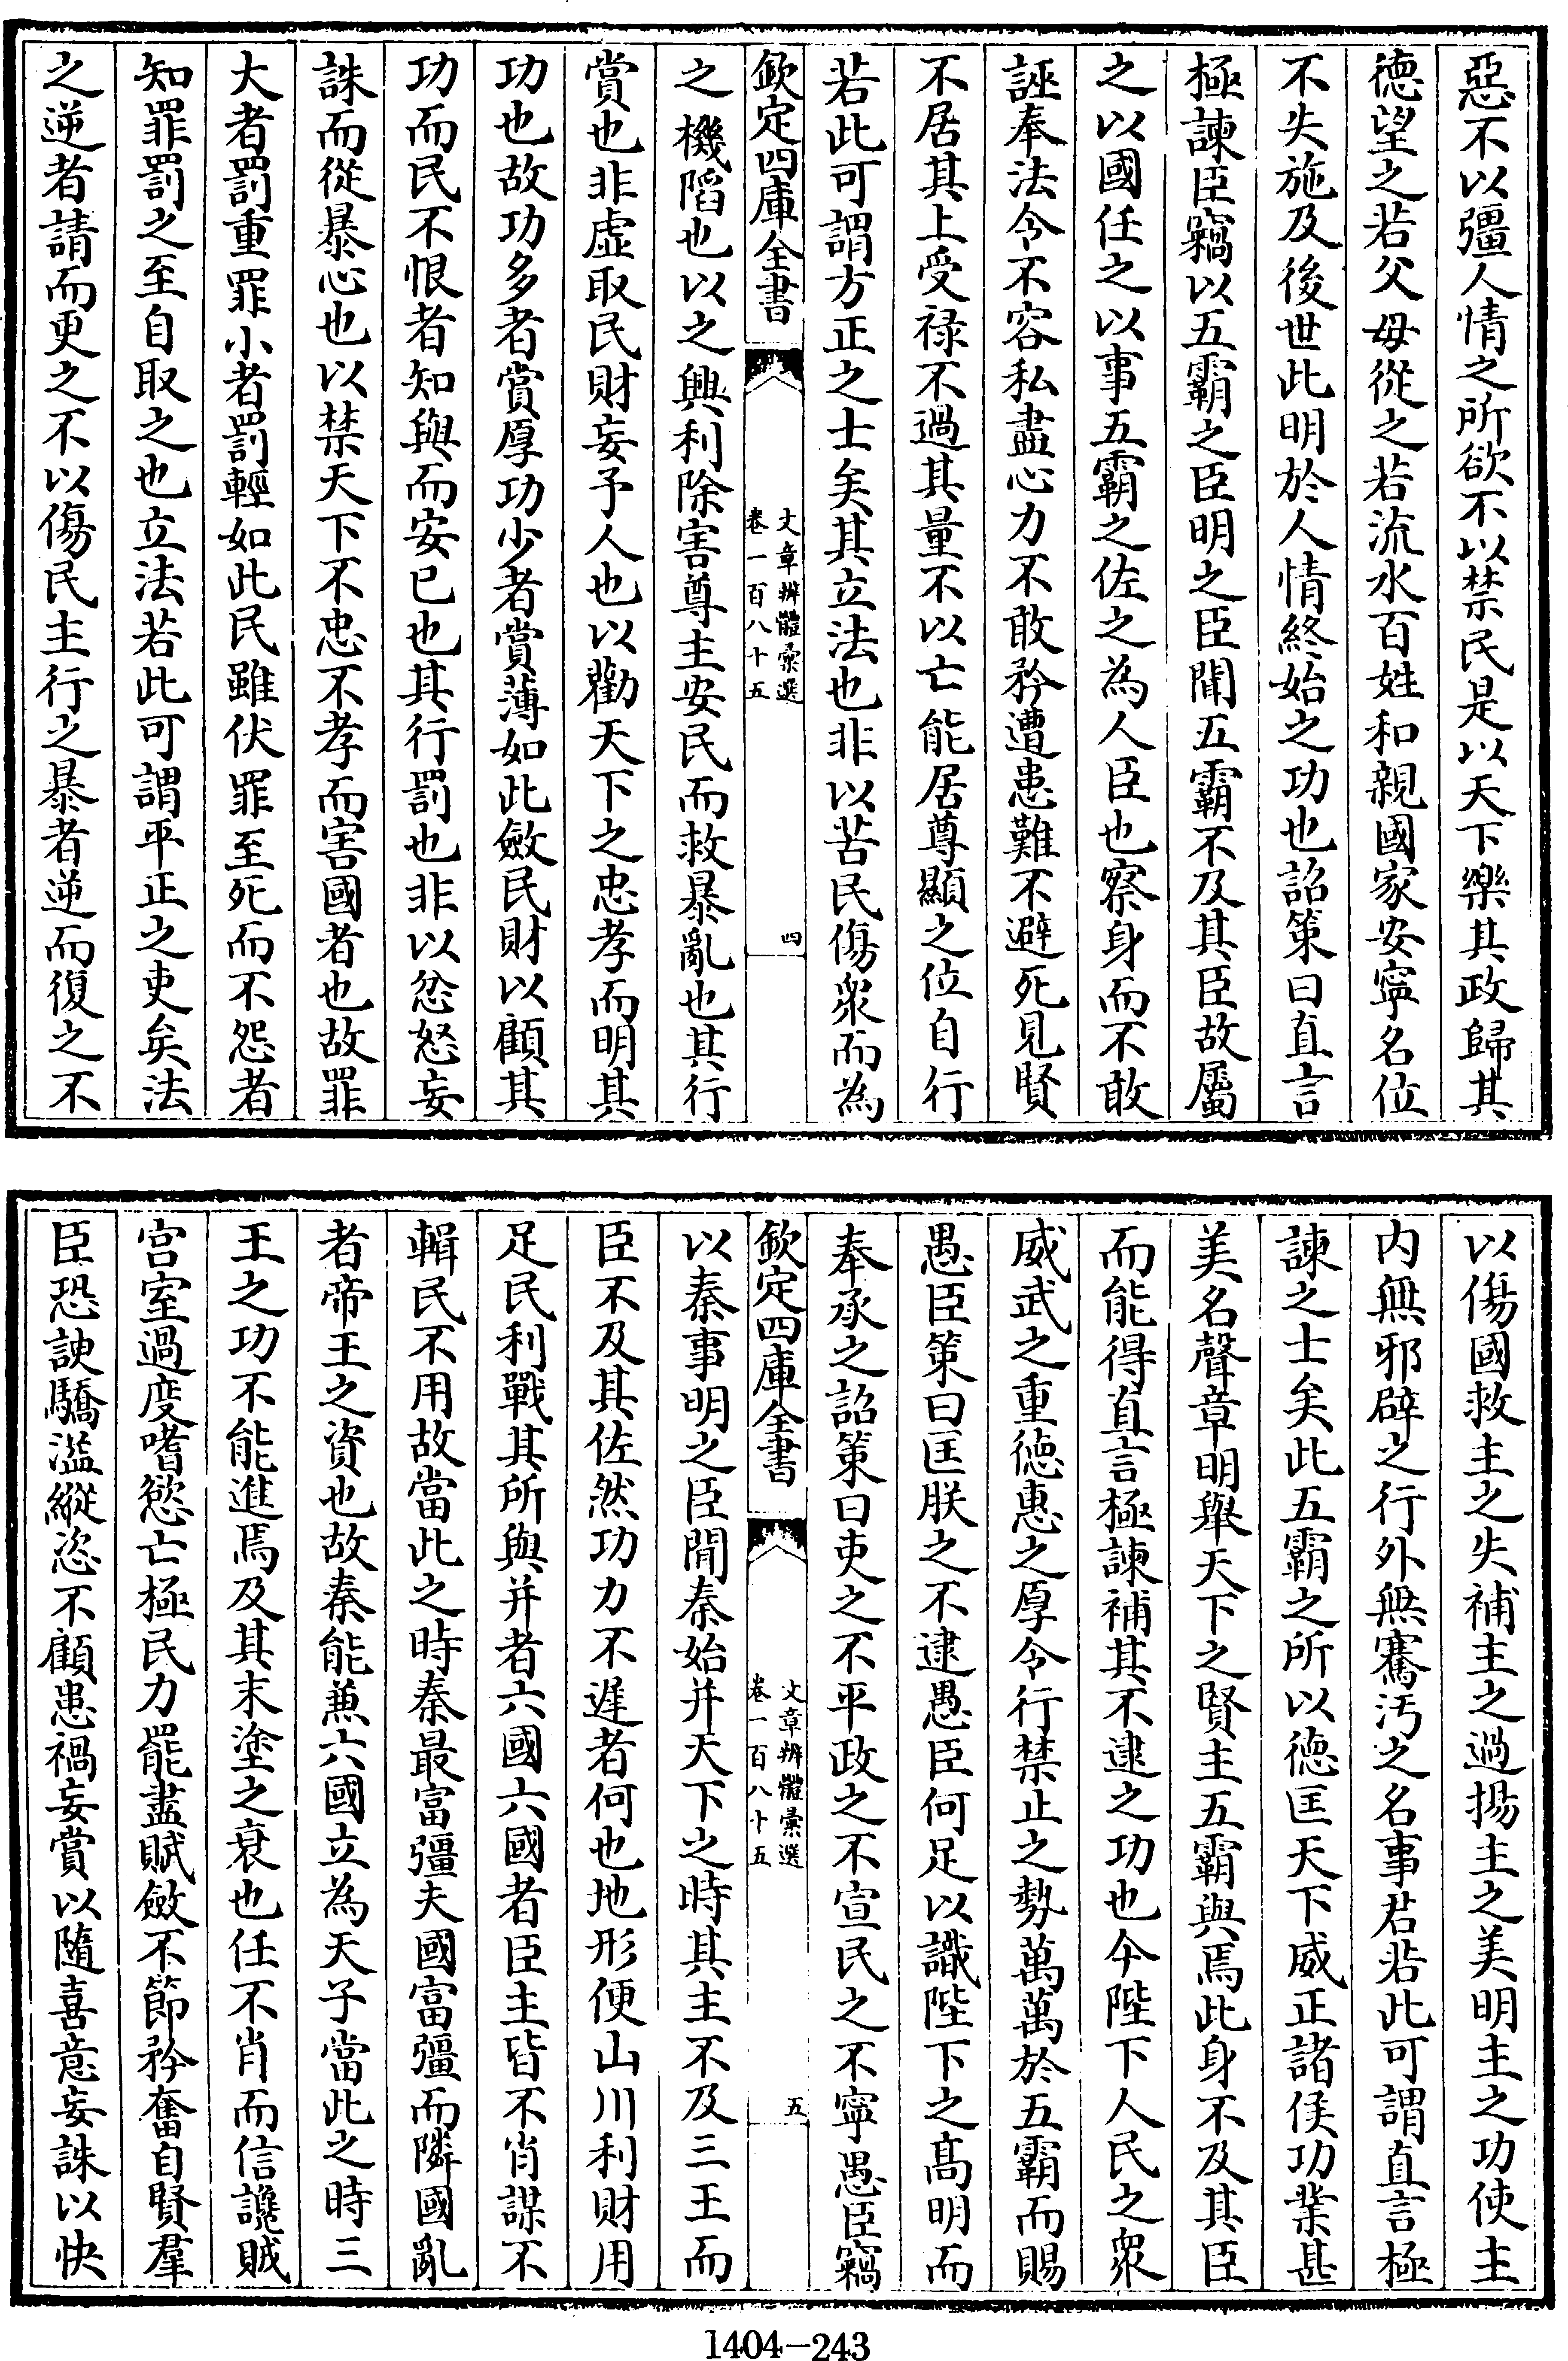 惡不以彊人情之所欲不以禁民是以天下樂其政歸其
德望之若父母從之若流水百姓和親國家安寧名位
不失施及後世此明於人情終始之功也詔策曰直言
極諫臣竊以五霸之臣明之臣聞五霸不及其臣故屬
之以國任之以事五霸之佐之為人臣也察身而不敢
誣奉法令不容私盡心力不敢矜遭患難不避死見賢
不居其上受禄不過其量不以亡能居尊顯之位自行
若此可謂方正之士矣其立法也非以苦民傷衆而為
欽定四庫全書
文章辨體彚選
卷一百八十五
四
之機陷也以之興利除害尊主安民而救暴亂也其行
賞也非虚取民財妄予人也以勸天下之忠孝而明其
功也故功多者賞厚功少者賞薄如此斂民財以顧其
功而民不恨者知與而安已也其行罰也非以忿怒妄
誅而從暴心也以禁天下不忠不孝而害國者也故罪
大者罰重罪小者罰輕如此民雖伏罪至死而不怨者
知罪罰之至自取之也立法若此可謂平正之吏矣法
之逆者請而更之不以傷民主行之暴者逆而復之不
以傷國救主之失補主之過揚主之美明主之功使主
内無邪辟之行外無騫汚之名事君若此可謂直言極
諫之士矣此五霸之所以德匡天下威正諸侯功業甚
美名聲章明舉天下之賢主五霸與焉此身不及其臣
而能得直言極諫補其不逮之功也今陛下人民之衆
威武之重德惠之厚令行禁止之勢萬萬於五霸而賜
愚臣策曰匡朕之不逮愚臣何足以識陛下之髙明而
奉承之詔策曰吏之不平政之不宣民之不寧愚臣竊
欽定四庫全書
文章辨體彚選
卷一百八十五
五
以秦事明之臣聞秦始并天下之時其主不及三王而
臣不及其佐然功力不遲者何也地形便山川利財用
足民利戰其所與并者六國六國者臣主皆不肖謀不
輯民不用故當此之時秦最富彊夫國富彊而隣國亂
者帝王之資也故秦能兼六國立為天子當此之時三
王之功不能進焉及其末塗之衰也任不肖而信讒賊
宫室過度嗜慾亡極民力罷盡賦斂不節矜奮自賢羣
臣恐諛驕溢縱恣不顧患禍妄賞以隨喜意妄誅以快
1404-243